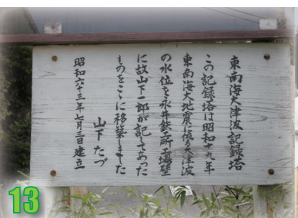 東南海大津波記録塔
この記録塔は昭和十九年
東南海大地震に依る大津波
の水位を永井鉄工所壁
に故山下二郎が記してあった
ものをここに移築しました
山下たづ
昭和六十三年七月三日建立
13